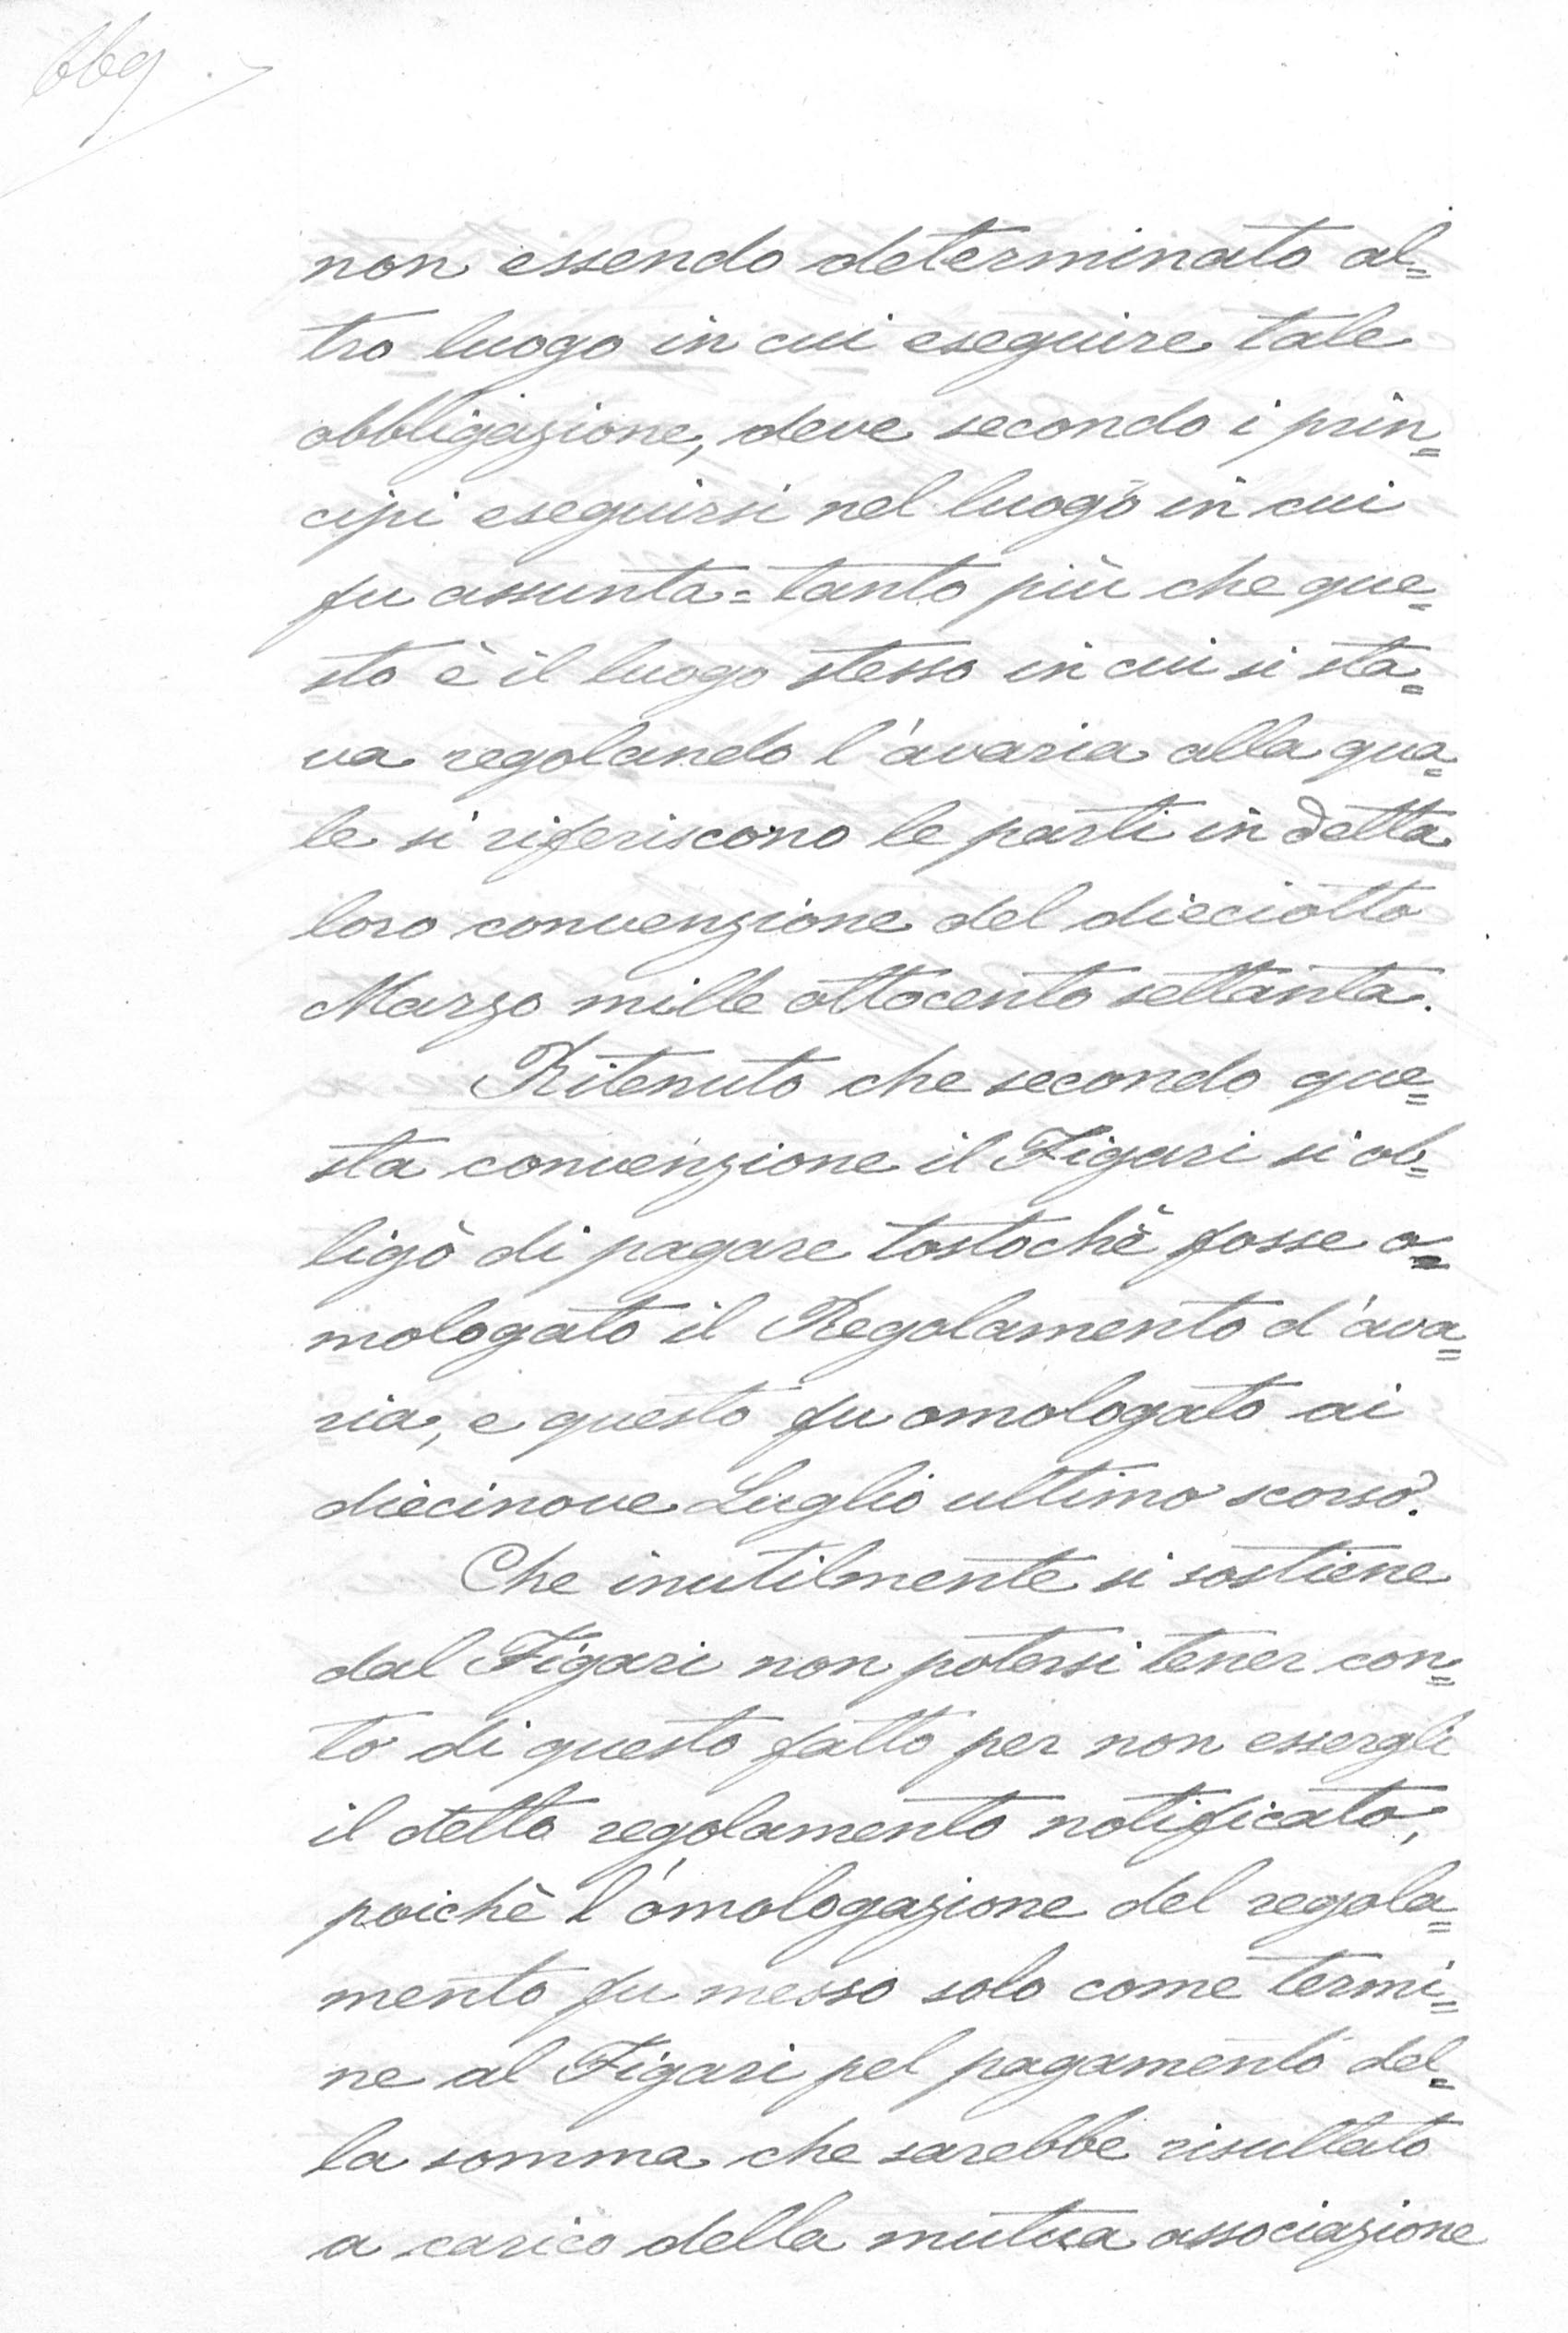 non essendo determinato al=
tro luogo in cui eseguire tale
obbligazione, deve secondo i prin=
cipi eseguirsi nel luogo in cui
fu assunta = tanto più che que=
sto è il luogo stesso in cui si sta=
va regolando l'avaria alla qua=
le si riferiscono le parti in detta
loro convenzione del dieciotto
Marzo mille ottocento settanta.
Ritenuto che secondo que=
sta convenzione il Figari si ob=
ligò di pagare tostochè fosse o=
mologato il Regolamento d'ava=
ria, e questo fu omologato ai
diecinove Luglio ultimo scorso.
Che inutilmente si sostiene
dal Figari non potersi tener con=
to di questo fatto per non essergli
il detto regolamento notificato,
poichè l'omologazione del regola=
mento fu messo solo come termi=
ne al Figari pel pagamento del=
la somma che sarebbe risultato
a carico della mutua associazione